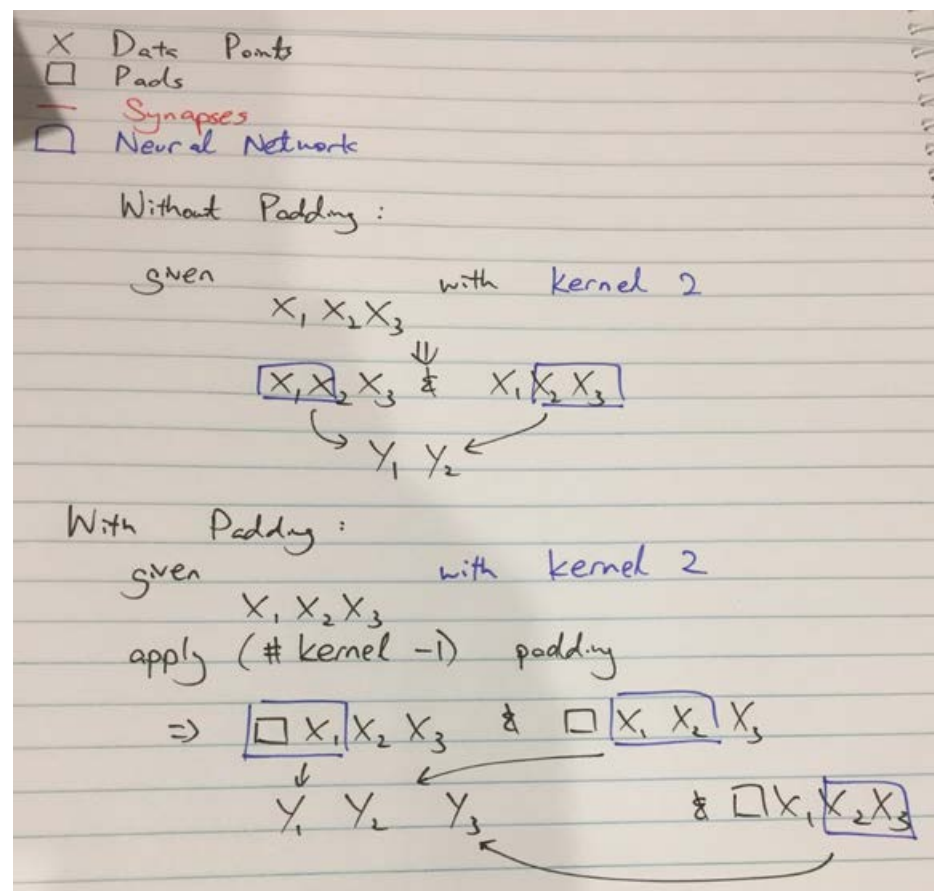 X Data Points
□ Pads
— Synapses
□ Neural Network
Without Padding :
given with kernel 2
X₁ X₂ X₃
⇓
X₁ X₂ X₃ & X₁ X₂ X₃
Y₁ Y₂
With Padding :
given with kernel 2
X₁ X₂ X₃
apply (# kernel -1) padding
⇒ □ X₁ X₂ X₃ & □ X₁ X₂ X₃
Y₁ Y₂ Y₃ & □ X₁ X₂ X₃